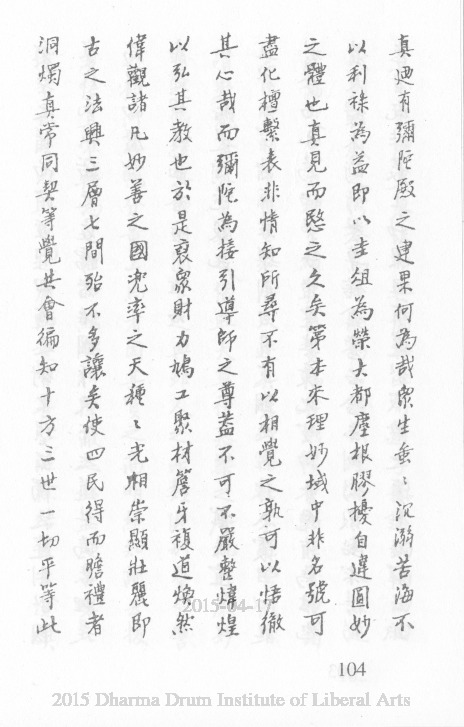 真迺有彌陀殿之建果何為哉眾生蚩〻沉溺苦海不
以利祿為益即以圭組為榮大都塵根膠擾自違圓妙
之體也真見而愍之久矣第本來理妙域中非名號可
盡化檀繫表非情知所尋不有以相覺之孰可以悟徹
其心哉而彌陀為接引導師之尊蓋不可不嚴整煒煌
以弘其教也於是裒眾財力鳩工聚材簷牙複道煥然
偉觀諸凡妙善之國兜率之天種〻光相崇顯壯麗即
古之法興三層七間殆不多讓矣使四民得而瞻禮者
洞燭真常同契等覺共會徧知十方三世一切平等此
2015-04-17
104
2015 Dharma Drum Institute of Liberal Arts